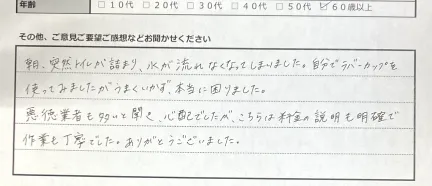 年齢 □10代 □20代 □30代 □40代 □50代 ☑60歳以上
その他、ご意見ご要望ご感想などお聞かせください
朝、突然トイレが詰まり、水が流れなくなってしまいました。自分でラバーカップを
使ってみましたがうまくいかず、本当に困りました。
悪徳業者も多いと聞く、心配でしたが、こちらは料金の説明も明確で
作業も丁寧でした。ありがとうございました。